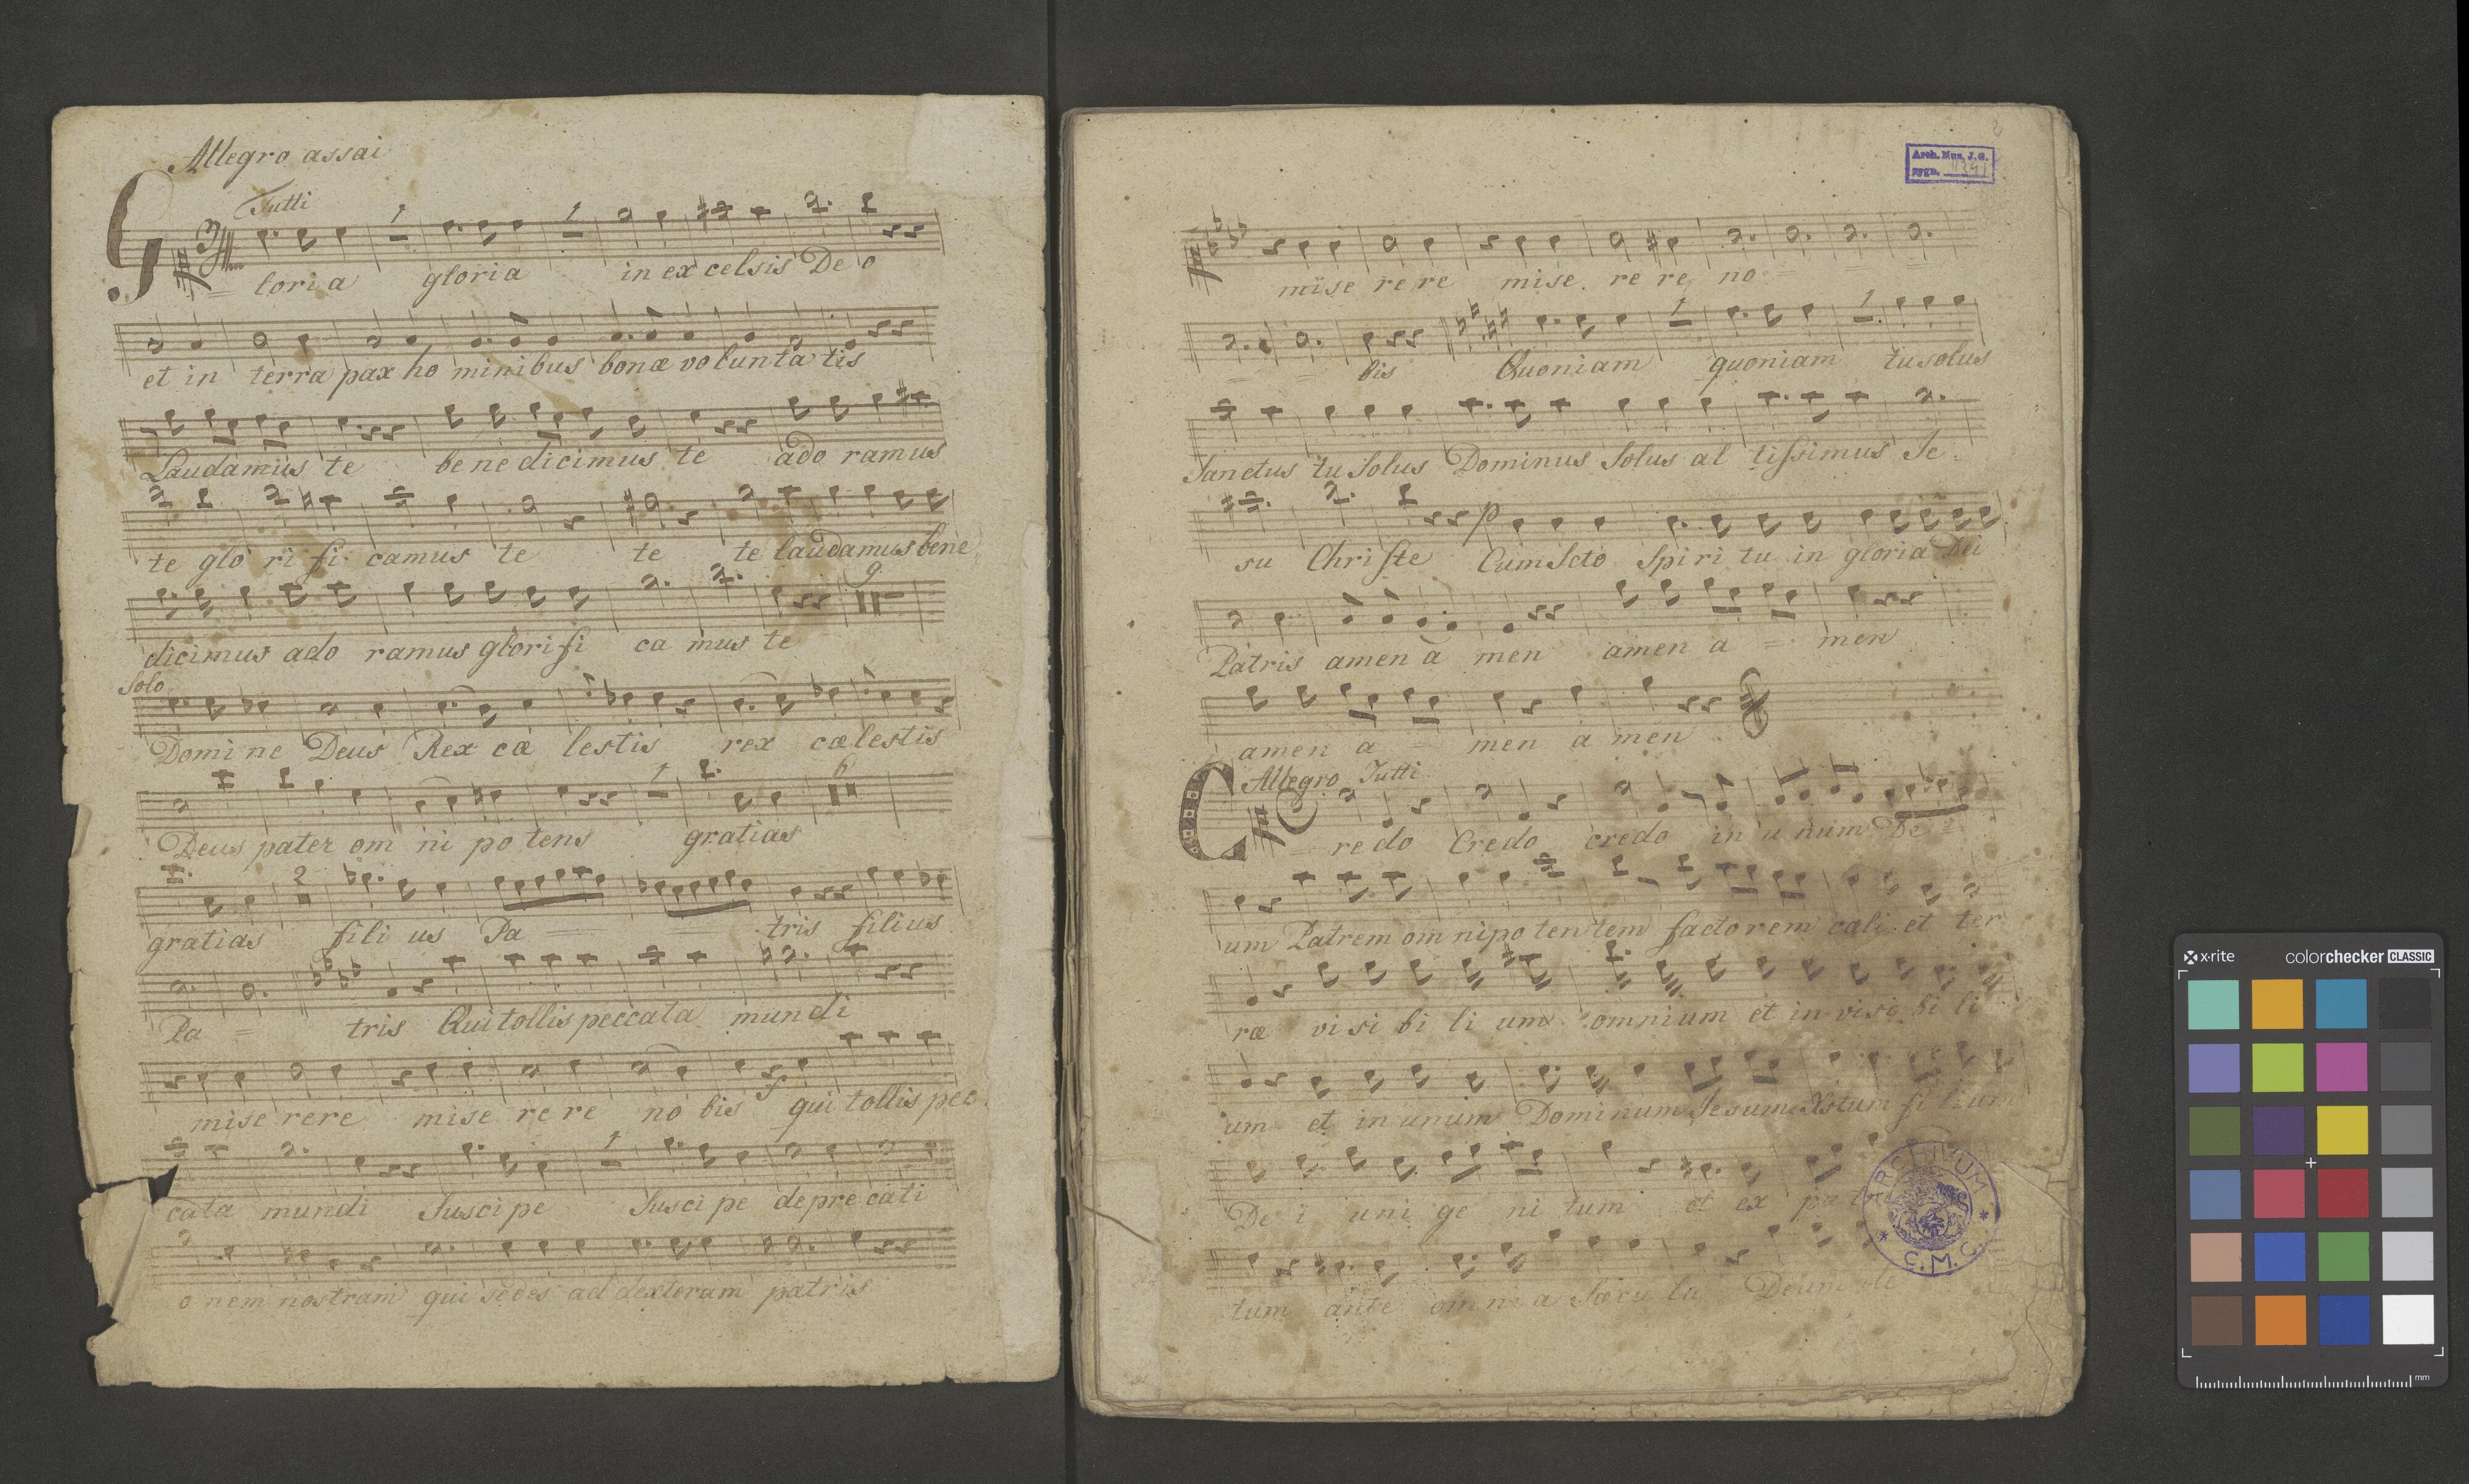 Allegro assai
Tutti
Gloria gloria in excelsis Deo
et in terra pax ho minibus bonæ voluntatis
Laudamus te be ne dicimus te ado ramus
te glo ri fi camus te te te laudamus bene
9
dicimus ado ramus glorifi ca mus te
Solo
Domi ne Deus Rex cæ lestis rex cælestis
6
Deus pater om ni po tens gratias
2
gratias fili us Pa = = tris filius
Pa = tris Qui tollis peccata mundi
mise rere mise re re no bis qui tollis pec
cata mundi Susci pe Susci pe depre cati
o nem nostram qui sedes ad dexteram patris
Arch. Muz. J. G.
sygn.
mise re re mise re re no = = =
= = bis Quoniam quoniam tu solus
Sanctus tu Solus Dominus Solus al tissimus Je
p
su Christe Cum Scto Spi ri tu in gloria Dei
Patris amen a men amen a = men
amen a = men a men
Allegro Tutti
Credo Credo credo in u num De
um Patrem omnipo ten tem factorem cæli et ter
ræ visi bi li um omnium et in visi bi li
um et in unum Dominum Jesum Xstum fi lium
De i uni ge ni tum et ex pa
ARCHIVUM
C.M.C.
tum ante omni a Sæcu la Deum de
x-rite colorchecker CLASSIC
mm